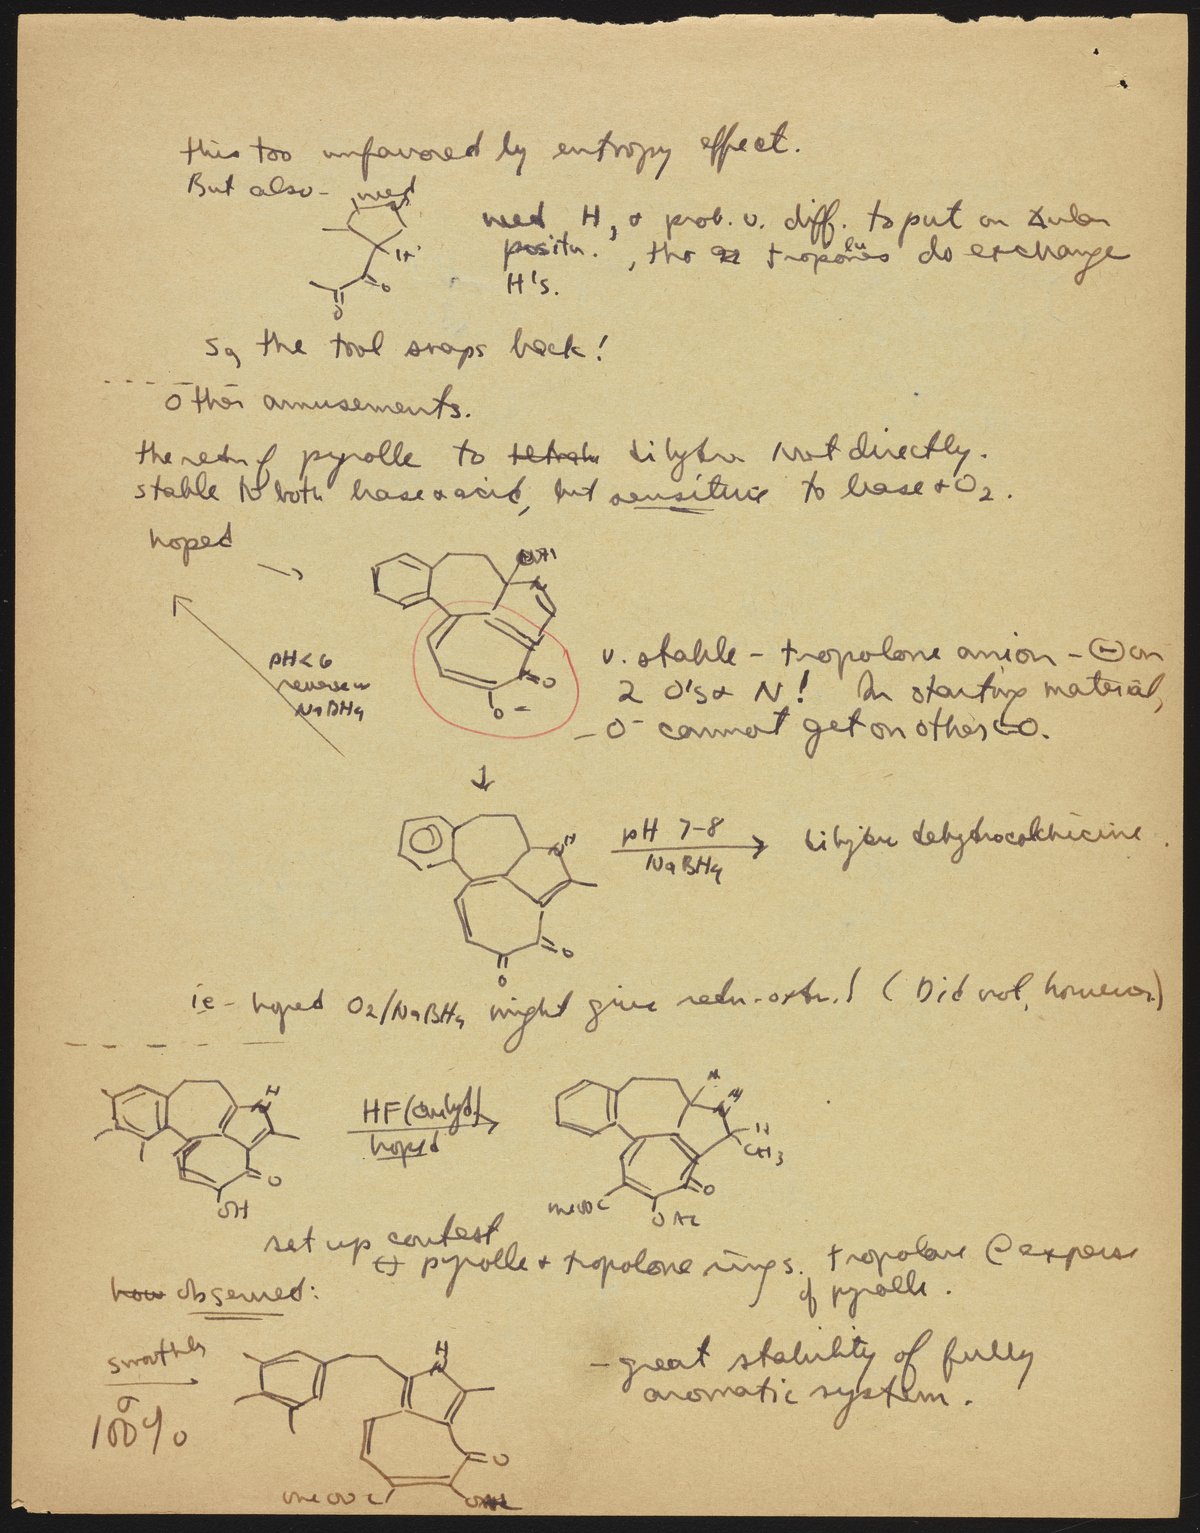 this too unfavored by entropy effect.
But also - need
need H, & prob. v. diff. to put on
positn. , tho tropolones do exchange
H's.
H
O
O
So, the tool snaps back!
Other amusements.
the redn of pyrolle to dihydro not directly.
stable to both base & acid, but sensitive to base + O2.
hoped →
N
O
O-
pH<6
reverse
NaBH4
v. stable - tropolone anion - ⊖ on
2 O's & N! In starting material,
- O- cannot get on other C=O.
↓
H
N
O
O
pH 7-8
NaBH4
dihydro dehydrocolchicine.
ie - hoped O2/NaBH4 might give redn-oxdn.! (Did not, however)
H
N
O
OH
HF (anhyd.)
hoped
H
N
H
CH3
O
MeOOC
OAc
set up contest
↔ pyrolle & tropolone rings. tropolone @ expense
of pyrolle.
how observed:
smoothly
100%
H
N
O
MeOOC
- great stability of fully
aromatic system.